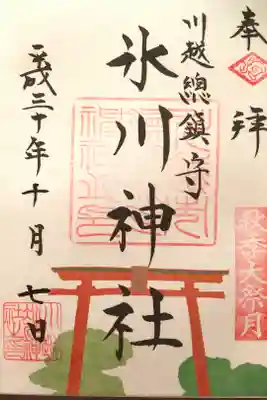 奉拝
川越總鎮守
氷川神社
秋季大祭月
平成三十年十月七日